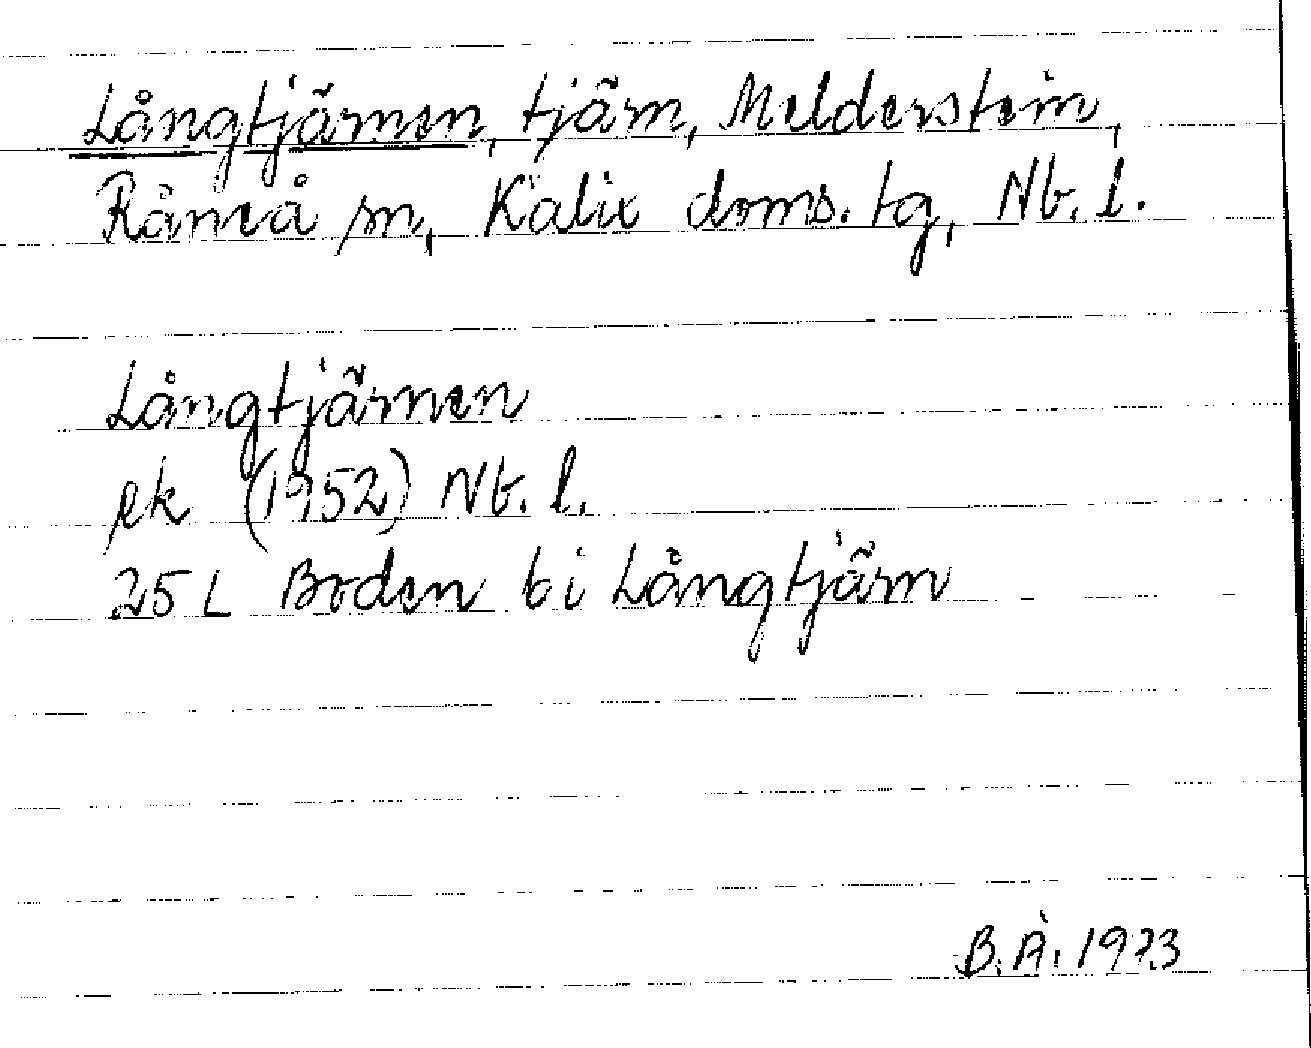 Långtjärnen, tjärn, Melderstein,
Råneå sn, Kalix doms. tg, Nb. l.
Långtjärnen
ek (1952) Nb. l.
25 L Boden bi Långtjärn
B.Å. 1973